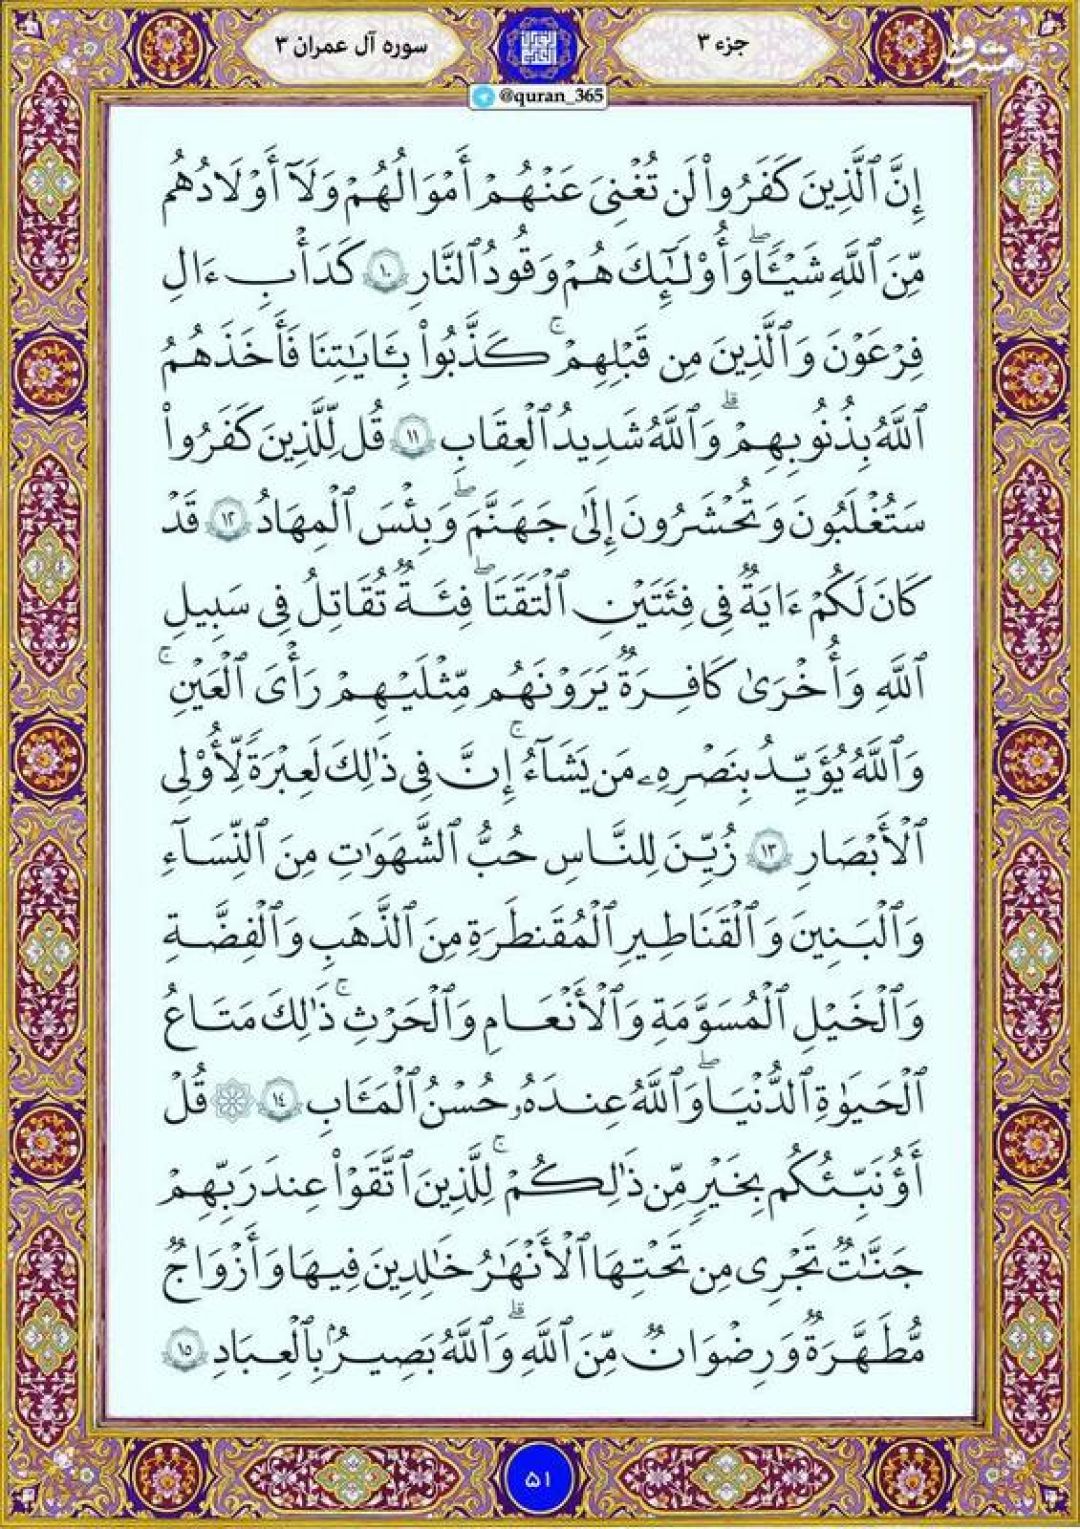 جزء ۳
سوره آل عمران ۳
@quran_365
مشرق
إِنَّ ٱلَّذِينَ كَفَرُواْ لَن تُغْنِىَ عَنْهُمْ أَمْوَالُهُمْ وَلَآ أَوْلَادُهُم
مِّنَ ٱللَّهِ شَيْـًٔاۖ وَأُوْلَـٰٓئِكَ هُمْ وَقُودُ ٱلنَّارِ ۱۰ كَدَأْبِ ءَالِ
فِرْعَوْنَ وَٱلَّذِينَ مِن قَبْلِهِمْۚ كَذَّبُواْ بِـَٔايَـٰتِنَا فَأَخَذَهُمُ
ٱللَّهُ بِذُنُوبِهِمْۗ وَٱللَّهُ شَدِيدُ ٱلْعِقَابِ ۱۱ قُل لِّلَّذِينَ كَفَرُواْ
سَتُغْلَبُونَ وَتُحْشَرُونَ إِلَىٰ جَهَنَّمَۖ وَبِئْسَ ٱلْمِهَادُ ۱۲ قَدْ
كَانَ لَكُمْ ءَايَةٌ فِى فِئَتَيْنِ ٱلْتَقَتَاۖ فِئَةٌ تُقَاتِلُ فِى سَبِيلِ
ٱللَّهِ وَأُخْرَىٰ كَافِرَةٌ يَرَوْنَهُم مِّثْلَيْهِمْ رَأْىَ ٱلْعَيْنِۚ
وَٱللَّهُ يُؤَيِّدُ بِنَصْرِهِۦ مَن يَشَآءُۚ إِنَّ فِى ذَٰلِكَ لَعِبْرَةً لِّأُوْلِى
ٱلْأَبْصَارِ ۱۳ زُيِّنَ لِلنَّاسِ حُبُّ ٱلشَّهَوَٰتِ مِنَ ٱلنِّسَآءِ
وَٱلْبَنِينَ وَٱلْقَنَاطِيرِ ٱلْمُقَنطَرَةِ مِنَ ٱلذَّهَبِ وَٱلْفِضَّةِ
وَٱلْخَيْلِ ٱلْمُسَوَّمَةِ وَٱلْأَنْعَامِ وَٱلْحَرْثِۚ ذَٰلِكَ مَتَاعُ
ٱلْحَيَوٰةِ ٱلدُّنْيَاۖ وَٱللَّهُ عِندَهُۥ حُسْنُ ٱلْمَـَٔابِ ۱۴ قُلْ
أَؤُنَبِّئُكُم بِخَيْرٍ مِّن ذَٰلِكُمْۚ لِلَّذِينَ ٱتَّقَوْاْ عِندَ رَبِّهِمْ
جَنَّـٰتٌ تَجْرِى مِن تَحْتِهَا ٱلْأَنْهَـٰرُ خَـٰلِدِينَ فِيهَا وَأَزْوَاجٌ
مُّطَهَّرَةٌ وَرِضْوَانٌ مِّنَ ٱللَّهِۗ وَٱللَّهُ بَصِيرٌۢ بِٱلْعِبَادِ ۱۵
۵۱